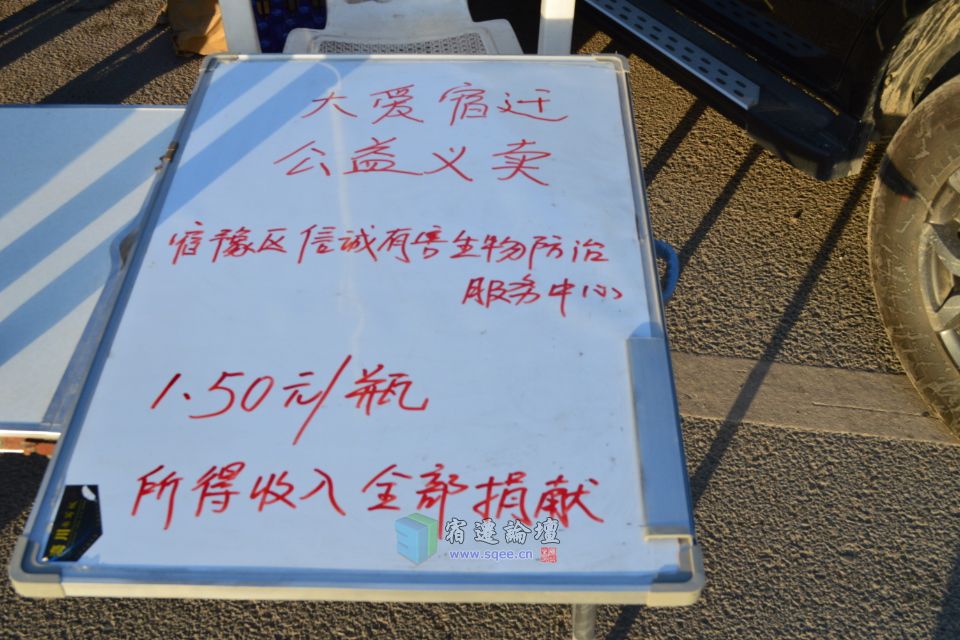 大爱宿迁
公益义卖
宿豫区信诚有害生物防治
服务中心
1.50元/瓶
所得收入全部捐献
宿迁論壇
www.sqee.cn